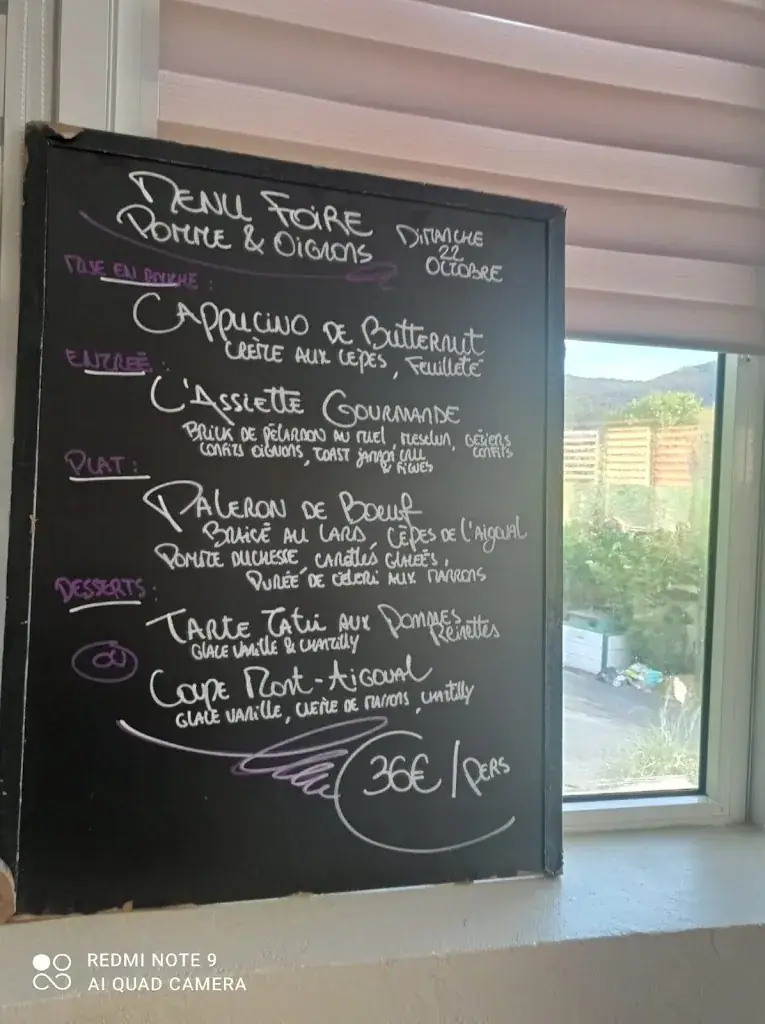 MENU FOIRE
POMME & OIGNONS
DIMANCHE
22
OCTOBRE
MISE EN BOUCHE :
CAPPUCINO DE BUTTERNUT
CRÈME AUX CÈPES, FEUILLETÉ
ENTREÉ :
L'ASSIETTE GOURMANDE
BRICK DE PÉLARDON AU MIEL, MESCLUN, GÉSIERS CONFITS
CONFITS OIGNONS, TOAST JAMBON CRU
& FIGUES
PLAT :
PALERON DE BOEUF
BRAISÉ AU LARD, CÈPES DE L'AIGOUAL
POMME DUCHESSE, CAROTTES GLACÉES,
PURÉE DE CELERI AUX MARRONS
DESSERTS :
TARTE TATIN AUX POMMES
REINETTES
GLACE VANILLE & CHANTILLY
OU
COUPE MONT-AIGOUAL
GLACE VANILLE, CRÈME DE MARRONS, CHANTILLY
36€/PERS
REDMI NOTE 9
AI QUAD CAMERA